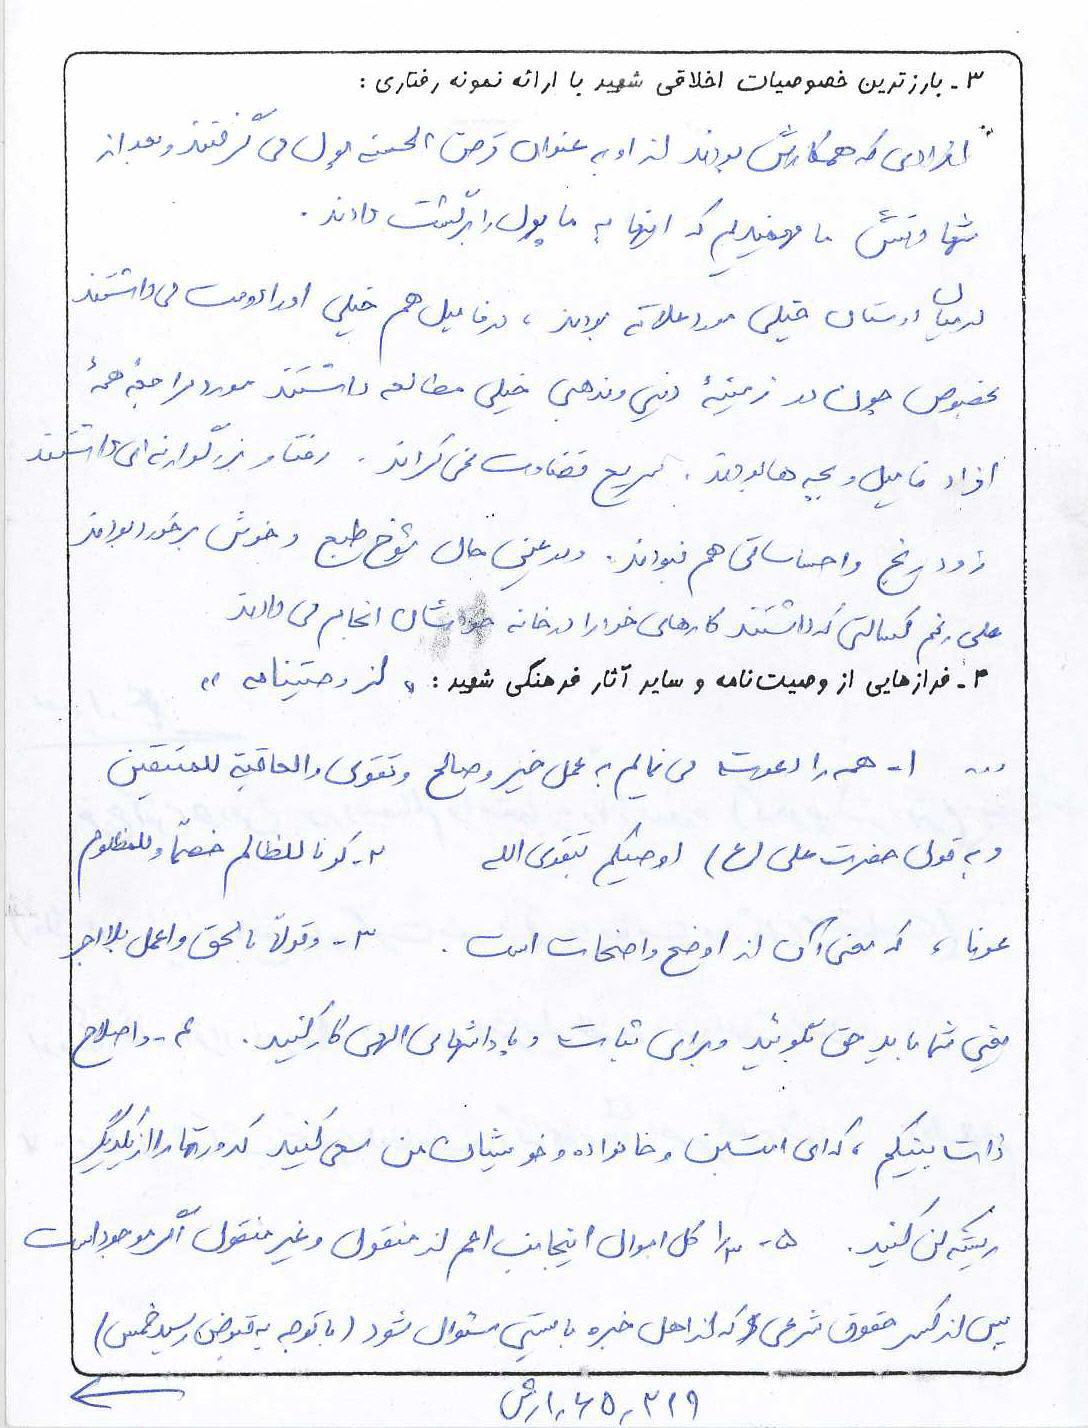 ۳ـ بارزترین خصوصیات اخلاقی شهید با ارائه نمونه رفتاری :
افرادی که همکارش بودند از او به عنوان قرض الحسنه پول می گرفتند و بعد از
شهادتش ما فهمیدیم که اینها به ما پول را برگشت دادند .
در میان دوستان خیلی مورد علاقه بودند ، در فامیل هم خیلی او را دوست می داشتند
بخصوص چون در زمینهٔ دینی و مذهبی خیلی مطالعه داشتند مورد مراجعهٔ همهٔ
افراد فامیل و بچه ها بودند . سریع قضاوت نمی کردند . رفتار بزرگوارانه ای داشتند
زود رنج و احساساتی هم نبودند . و در عین حال شوخ طبع و خوش برخورد بودند
علی رغم کسالتی که داشتند کارهای خود را در خانه خودشان انجام می دادند
۴ـ فرازهایی از وصیت‌نامه و سایر آثار فرهنگی شهید : « از وصیتنامه »
... ۱- همه را دعوت می نمایم به عمل خیر و صالح و تقوی والعاقبة للمتقین
و به قول حضرت علی (ع) اوصیکم بتقوی الله ۲- کونا للظالم خصمًا و للمظلوم
عونا ، که معنی آن از اوضح واضحات است . ۳- و قولاً بالحق و اعمل بلااجر
یعنی شما باید حق بگوئید و برای ثبات و پاداشهای الهی کار کنید . ۴- و اصلاح
ذات بینکم ، که ای امت من و خانواده و خویشان من سعی کنید کدورتها را از یکدیگر
ریشه کن کنید . ۵- کل اموال اینجانب اعم از منقول و غیر منقول اگر موجود است
پس از کسر حقوق شرعی که از اهل خبره بایستی سئوال شود (با توجه به قبوض رسید خمس)